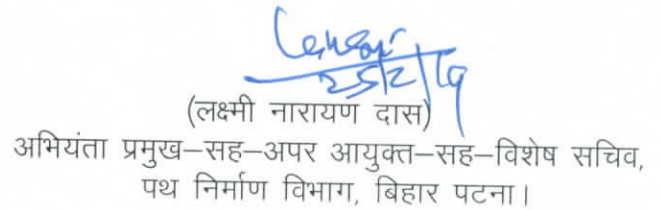 25/2/19
(लक्ष्मी नारायण दास)
अभियंता प्रमुख–सह–अपर आयुक्त–सह–विशेष सचिव,
पथ निर्माण विभाग, बिहार पटना।